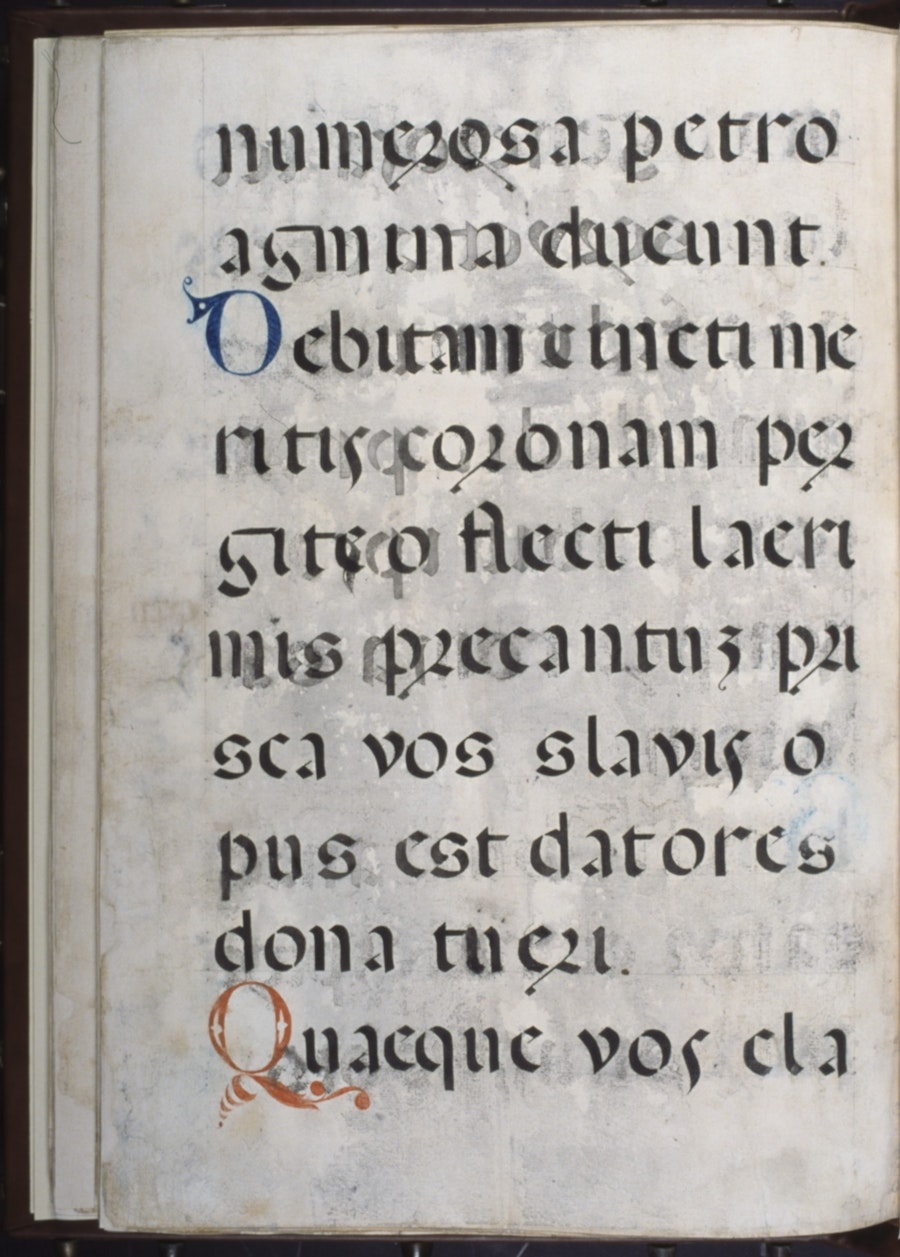 numerosa petro
agmina ducunt.
Debitam cincti me
ritis coronam per
giteo flecti lacri
mis precantur pri
sca vos slavis o
pus est datores
dona tueri.
Quaeque vos cla